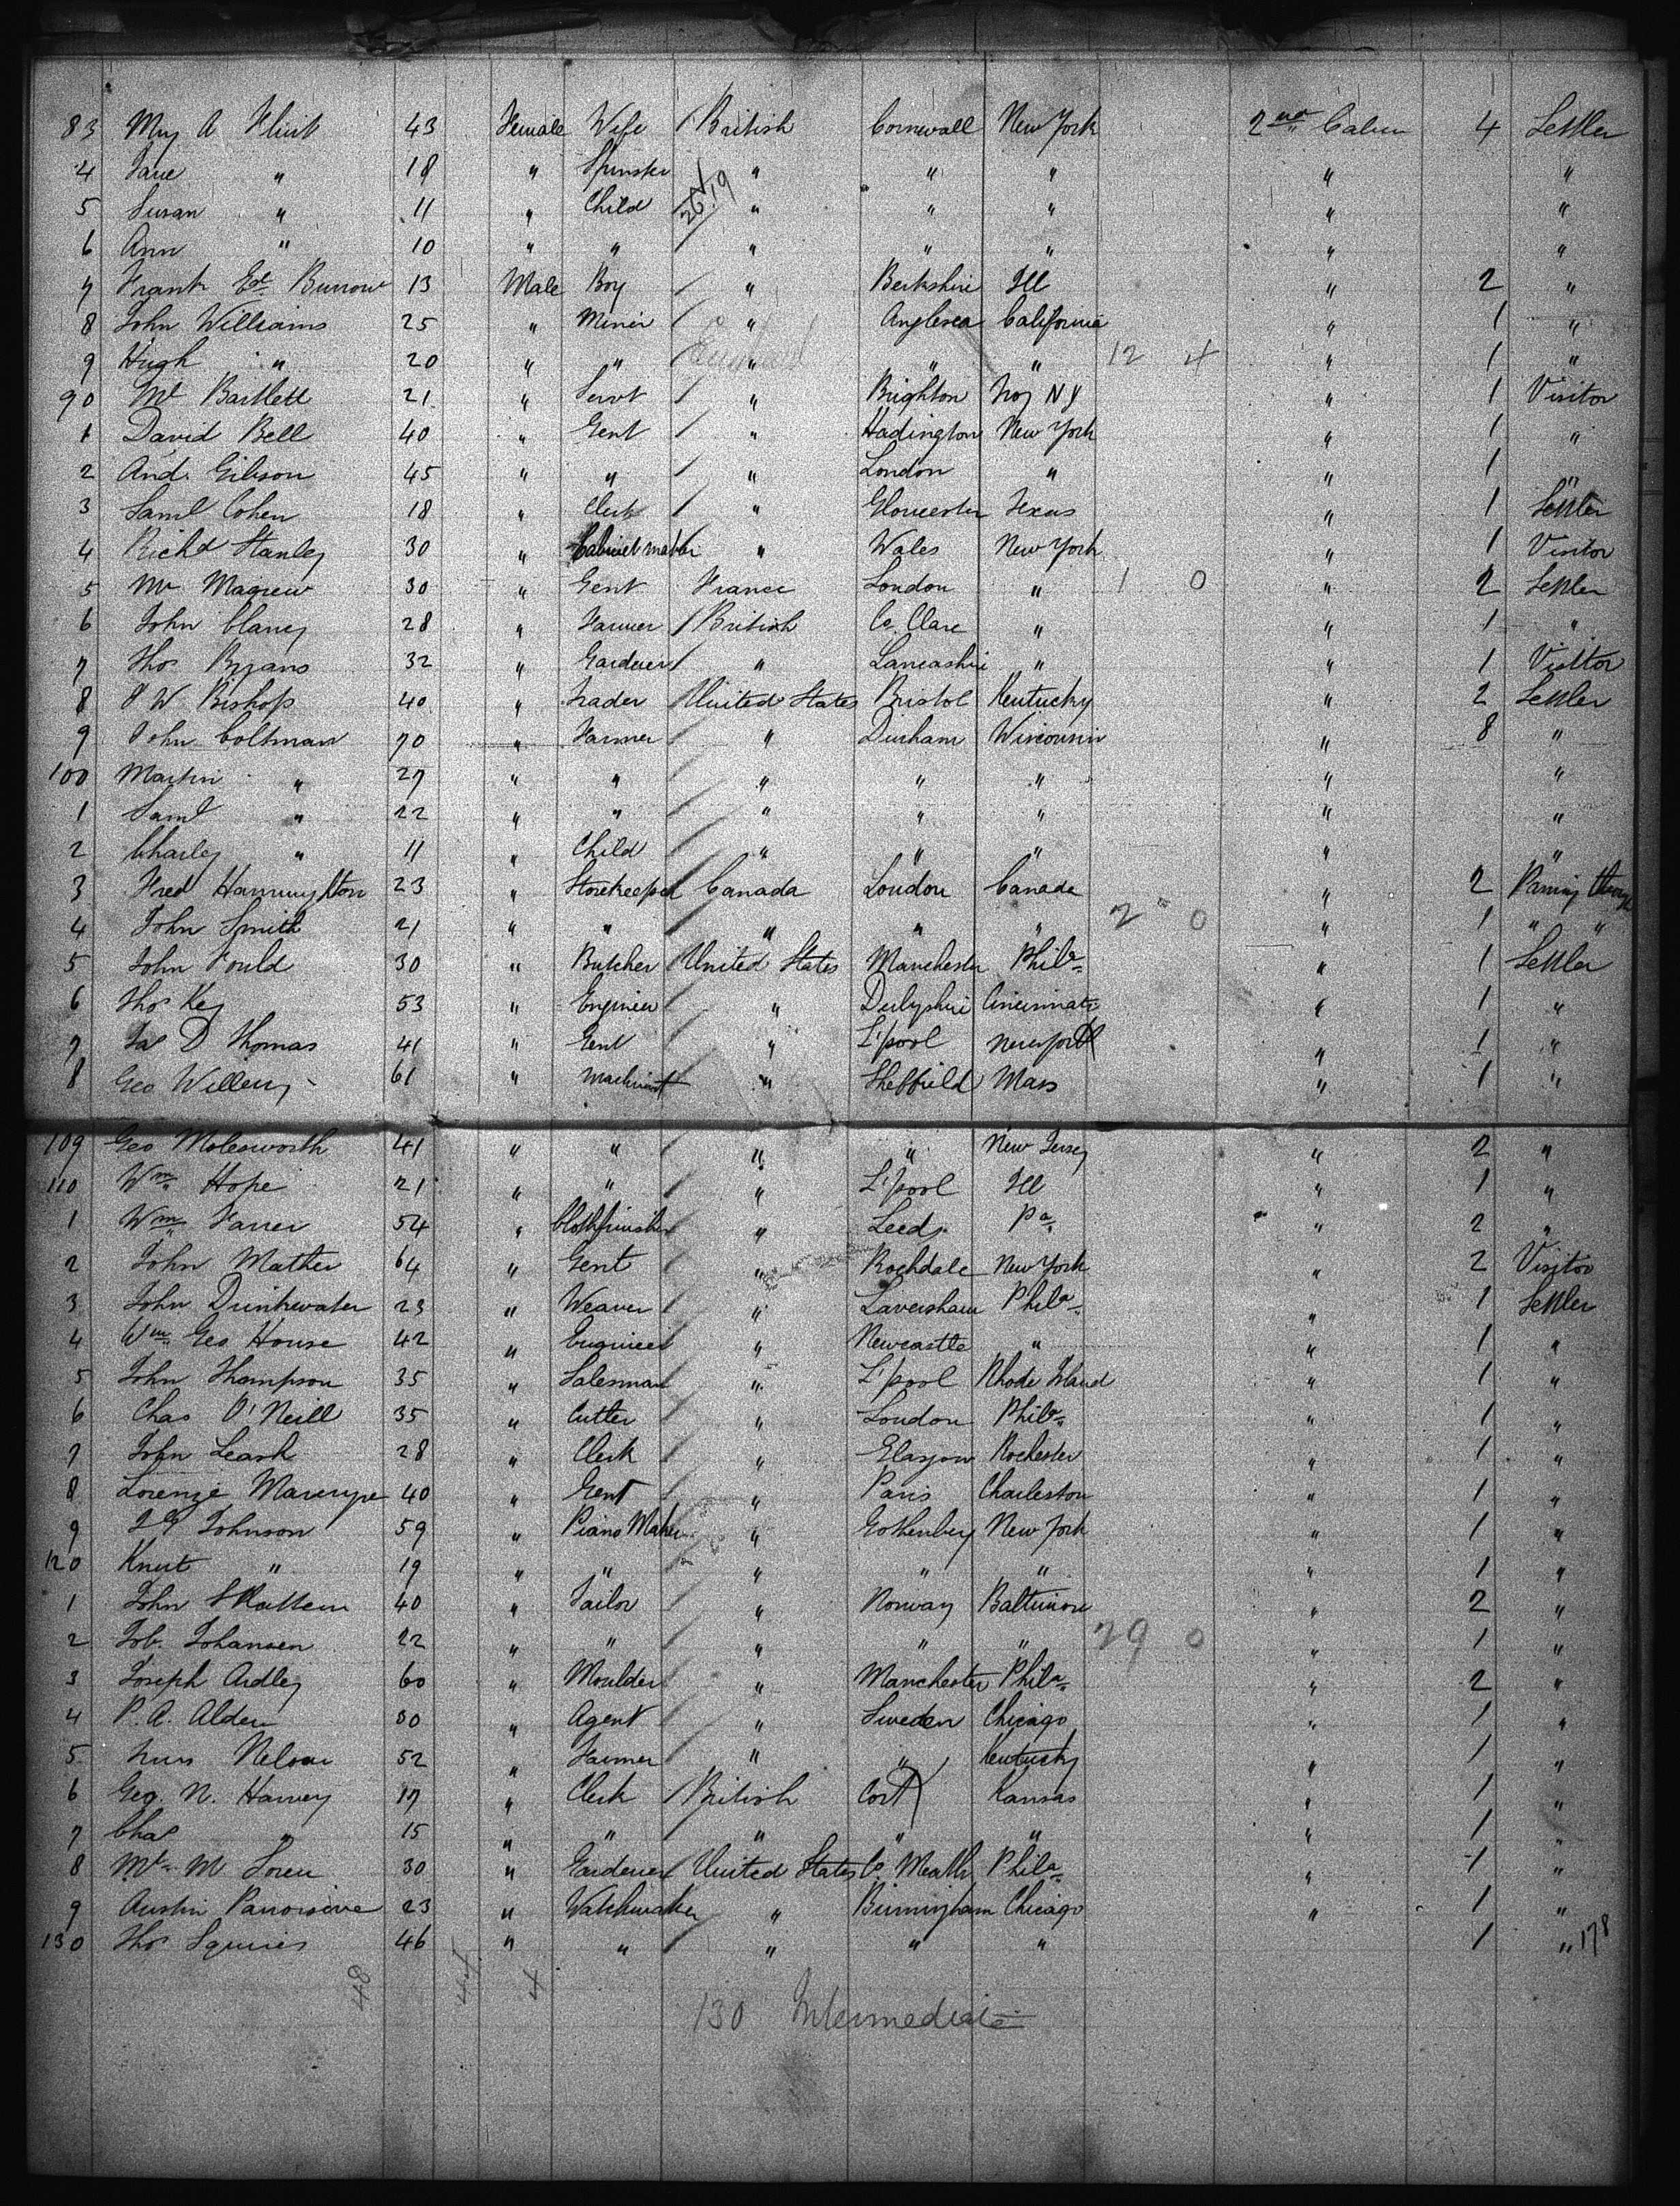 83 Mrs A Flint 43 Female Wife British Cornwall New York 2nd Cabin 4 Settler
4 Jane " 18 " Spinster " " " " "
5 Susan " 11 " Child " " " " "
6 Ann " 10 " " " " " " "
7 Frank Ed Burrow 13 Male Boy " Berkshire Ill " 2 "
8 John Williams 25 " Miner " Anglesea California " 1 "
9 Hugh " 20 " " " " " 12 4 " 1 "
90 Mr Bartlett 21 " Servt " Brighton Troy NY " 1 Visitor
1 David Bell 40 " Gent " Hadington New York " 1 "
2 And. Gibson 45 " " " London " " 1 "
3 Saml Cohen 18 " Clerk " Gloucester Texas " 1 Settler
4 Richd Stanley 30 " Cabinet maker " Wales New York " 1 Visitor
5 Mr Magrew 30 " Gent France London " 1 0 " 2 Settler
6 John Clancy 28 " Farmer British Co. Clare " " 1 "
7 Thos Bryans 32 " Gardener " Lancashire " " 1 Visitor
8 J W Bishop 40 " Trader United States Bristol Kentucky " 2 Settler
9 John Coltman 70 " Farmer " Durham Wisconsin " 8 "
100 Martin " 27 " " " " " " "
1 Saml " 22 " " " " " " "
2 Charley " 11 " Child " " " " "
3 Fred Hannington 23 " Storekeeper Canada London Canada " 2 Passing through
4 John Smith 21 " " " " " 2 " 0 " 1 " "
5 John Fould 30 " Butcher United States Manchester Phila " 1 Settler
6 Thos Key 53 " Engineer " Derbyshire Cincinnati " 1 "
7 Jas D Thomas 41 " Gent " L'pool Newport " 1 "
8 Geo Willery 61 " Machinist " Sheffield Mass " 1 "
109 Geo Molesworth 41 " " " " New Jersey " 2 "
110 Wm Hope 21 " " " L'pool Ill " 1 "
1 Wm Farrer 54 " Clothfinisher " Leeds Pa " 2 "
2 John Mather 64 " Gent " Rochdale New York " 2 Visitor
3 John Drinkwater 23 " Weaver " Laversham Phila " 1 Settler
4 Wm Geo House 42 " Engineer " Newcastle " " 1 "
5 John Thompson 35 " Salesman " L'pool Rhode Island " 1 "
6 Chas O'Neill 35 " Cutter " London Phila " 1 "
7 John Leash 28 " Clerk " Glasgow Rochester " 1 "
8 Lorenze 40 " Gent " Paris Charleston " 1 "
9 Johnson 59 " Piano Maker " Gothenberg New York " 1 "
120 Knut " 19 " " " " " " 1 "
1 John 40 " Tailor " Norway Baltimore " 2 "
2 Job. Johansen 22 " " " " " 29 0 " 1 "
3 Joseph Ardley 60 " Moulder " Manchester Phila " 2 "
4 P. A. Alden 30 " Agent " Sweden Chicago " 1 "
5 Nelson 52 " Farmer " " Kentucky " 1 "
6 Geo. N. Harvey 17 " Clerk British Cork Kansas " 1 "
7 Chas " 15 " " " " " " 1 "
8 Mr M 30 " Gardener United States Co. Meath Phila " 1 "
9 Austin 23 " Watchmaker " Birmingham Chicago " 1 "
130 Thos Squires 46 " " " " " 1 " 178
48 44 4
130 Intermediate